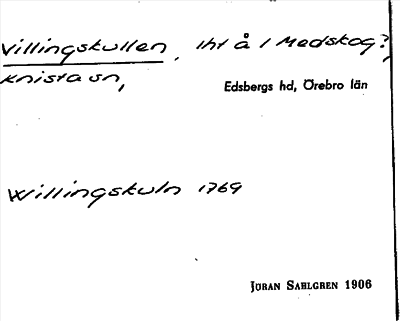 Villingskullen, lht å 1 Medskog?,
Knista sn,
Edsbergs hd, Örebro län
Willingskuln 1769
Jöran Sahlgren 1906